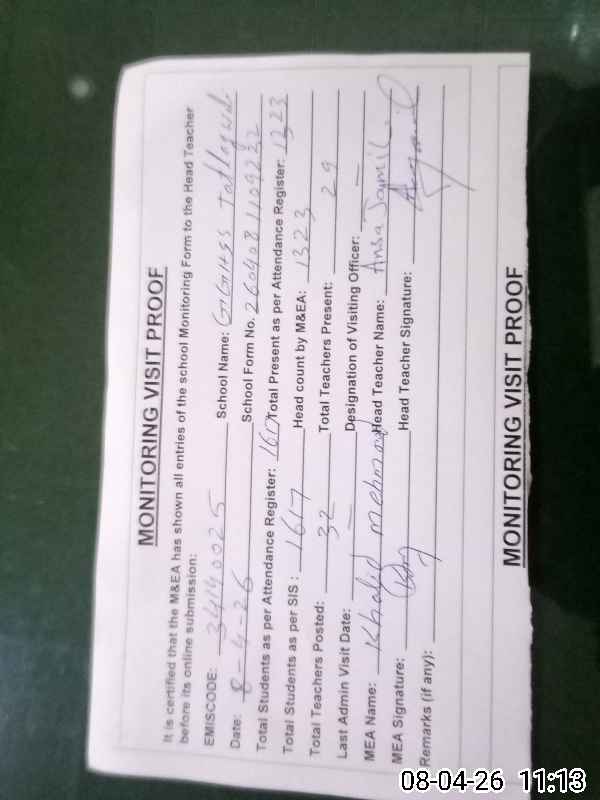 MONITORING VISIT PROOF
It is certified that the M&EA has shown all entries of the school Monitoring Form to the Head Teacher
before its online submission:
EMISCODE: 34140025 School Name: GGHSS
Date: 8-4-26 School Form No. 2604081109232
Total Students as per Attendance Register: 1617 Total Present as per Attendance Register: 1323
Total Students as per SIS : 1617 Head count by M&EA: 1323
Total Teachers Posted: 32 Total Teachers Present: 29
Last Admin Visit Date: — Designation of Visiting Officer: —
MEA Name: Khalid Mehmood Head Teacher Name: Ansa Jamil
MEA Signature: Head Teacher Signature:
Remarks (if any):
MONITORING VISIT PROOF
08-04-26 11:13